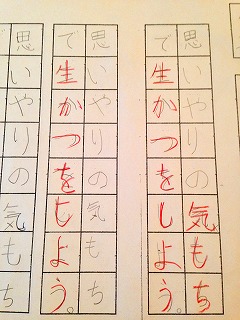 思いやりの気もち
で生かつをしよう。
思いやりの気もち
で生かつをしよう。
思いやりの気もち